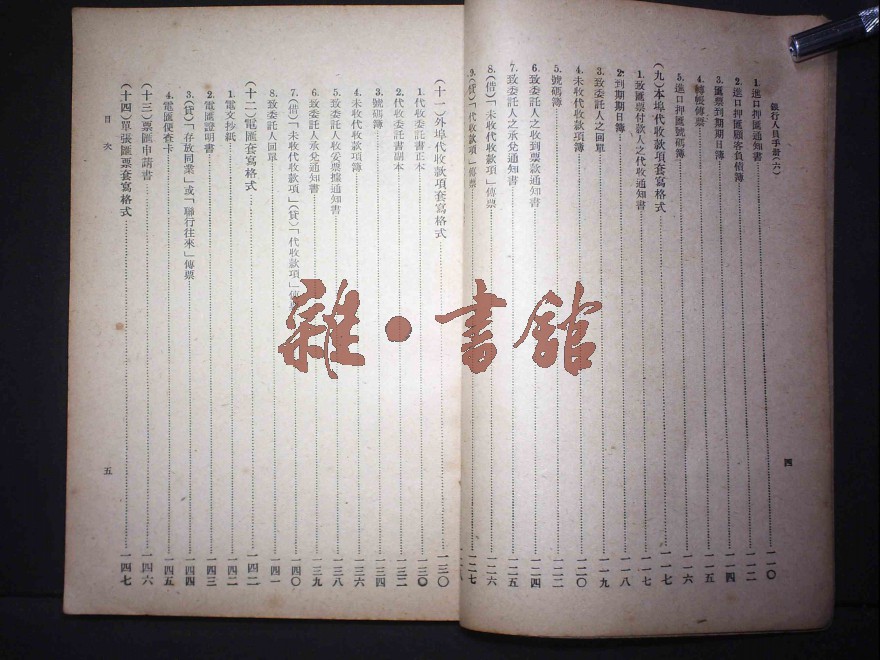 銀行人員手冊(六)
四
1.進口押匯通知書 一一〇
2.進口押匯顧客負債簿 一一二
3.匯票到期期日簿 一一四
4.轉帳傳票 一一五
5.進口押匯號碼簿 一一六
(九)本埠代收款項套寫格式 一一七
1.致匯票付款人之代收通知書 一一七
2.到期期日簿 一一八
3.致委託人之回單 一一九
4.未收代收款項簿 一二〇
5.號碼簿 一二二
6.致委託人之收到票款通知書 一二四
7.致委託人之承兌通知書 一二五
8.(借)「未收代收款項」傳票 一二六
9.(貸)「代收款項」傳票 一二七
(十一)外埠代收款項套寫格式 一三〇
1.代收委託書正本 一三〇
2.代收委託書副本 一三二
3.號碼簿 一三四
4.未收代收款項簿 一三六
5.致委託人收妥票據通知書 一三八
6.致委託人承兌通知書 一三九
7.(借)「未收代收款項」(貸)「代收款項」 一四〇
8.致委託人回單 一四一
(十二)電匯套寫格式 一四二
1.電文抄紙 一四二
2.電匯證明書 一四三
3.(貸)「存放同業」或「聯行往來」傳票 一四四
4.電匯便查卡 一四五
(十三)票匯申請書 一四六
(十四)單張匯票套寫格式 一四七
目次
五
雜·書館